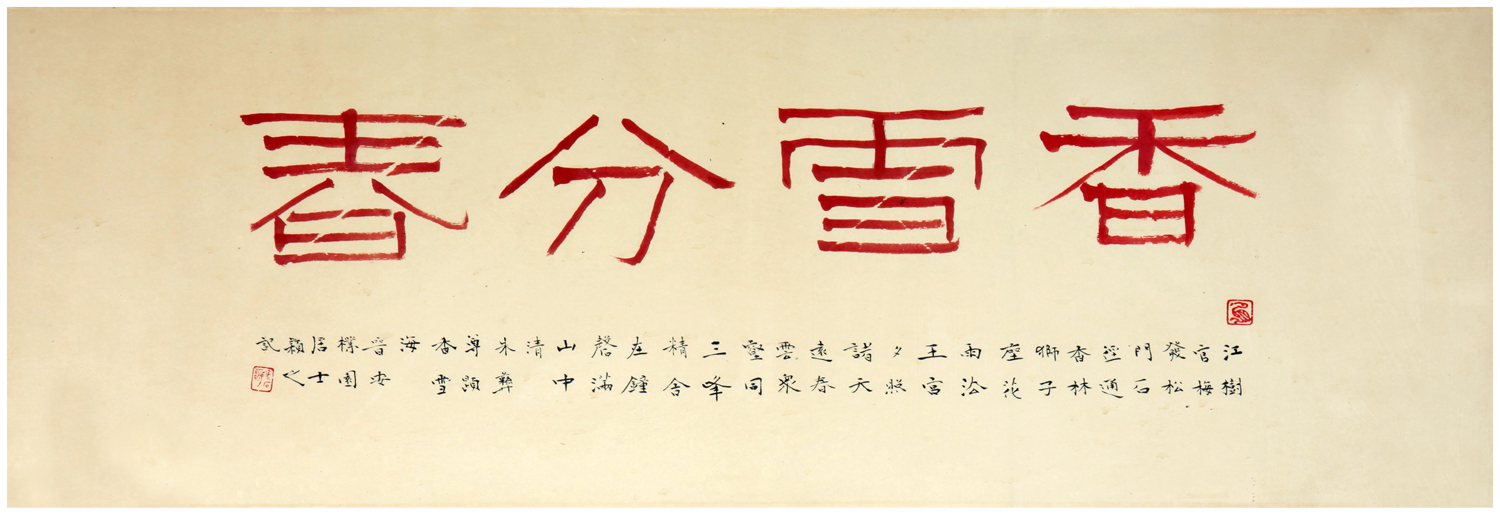 香雪分春
江樹
官梅
發松
門石
逕通
香林
獅子
座花
雨法
王宮
夕照
諸天
遠春
雲衆
壑同
三峰
精舍
在鐘
磬滿
山中
清
朱彝
尊題
香雪
海
晉安
櫟園
居士
穎之